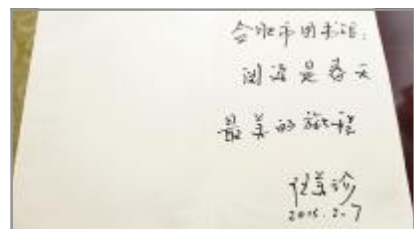 合肥市图书馆：
阅读是春天
最美的旅程
2015.2.7